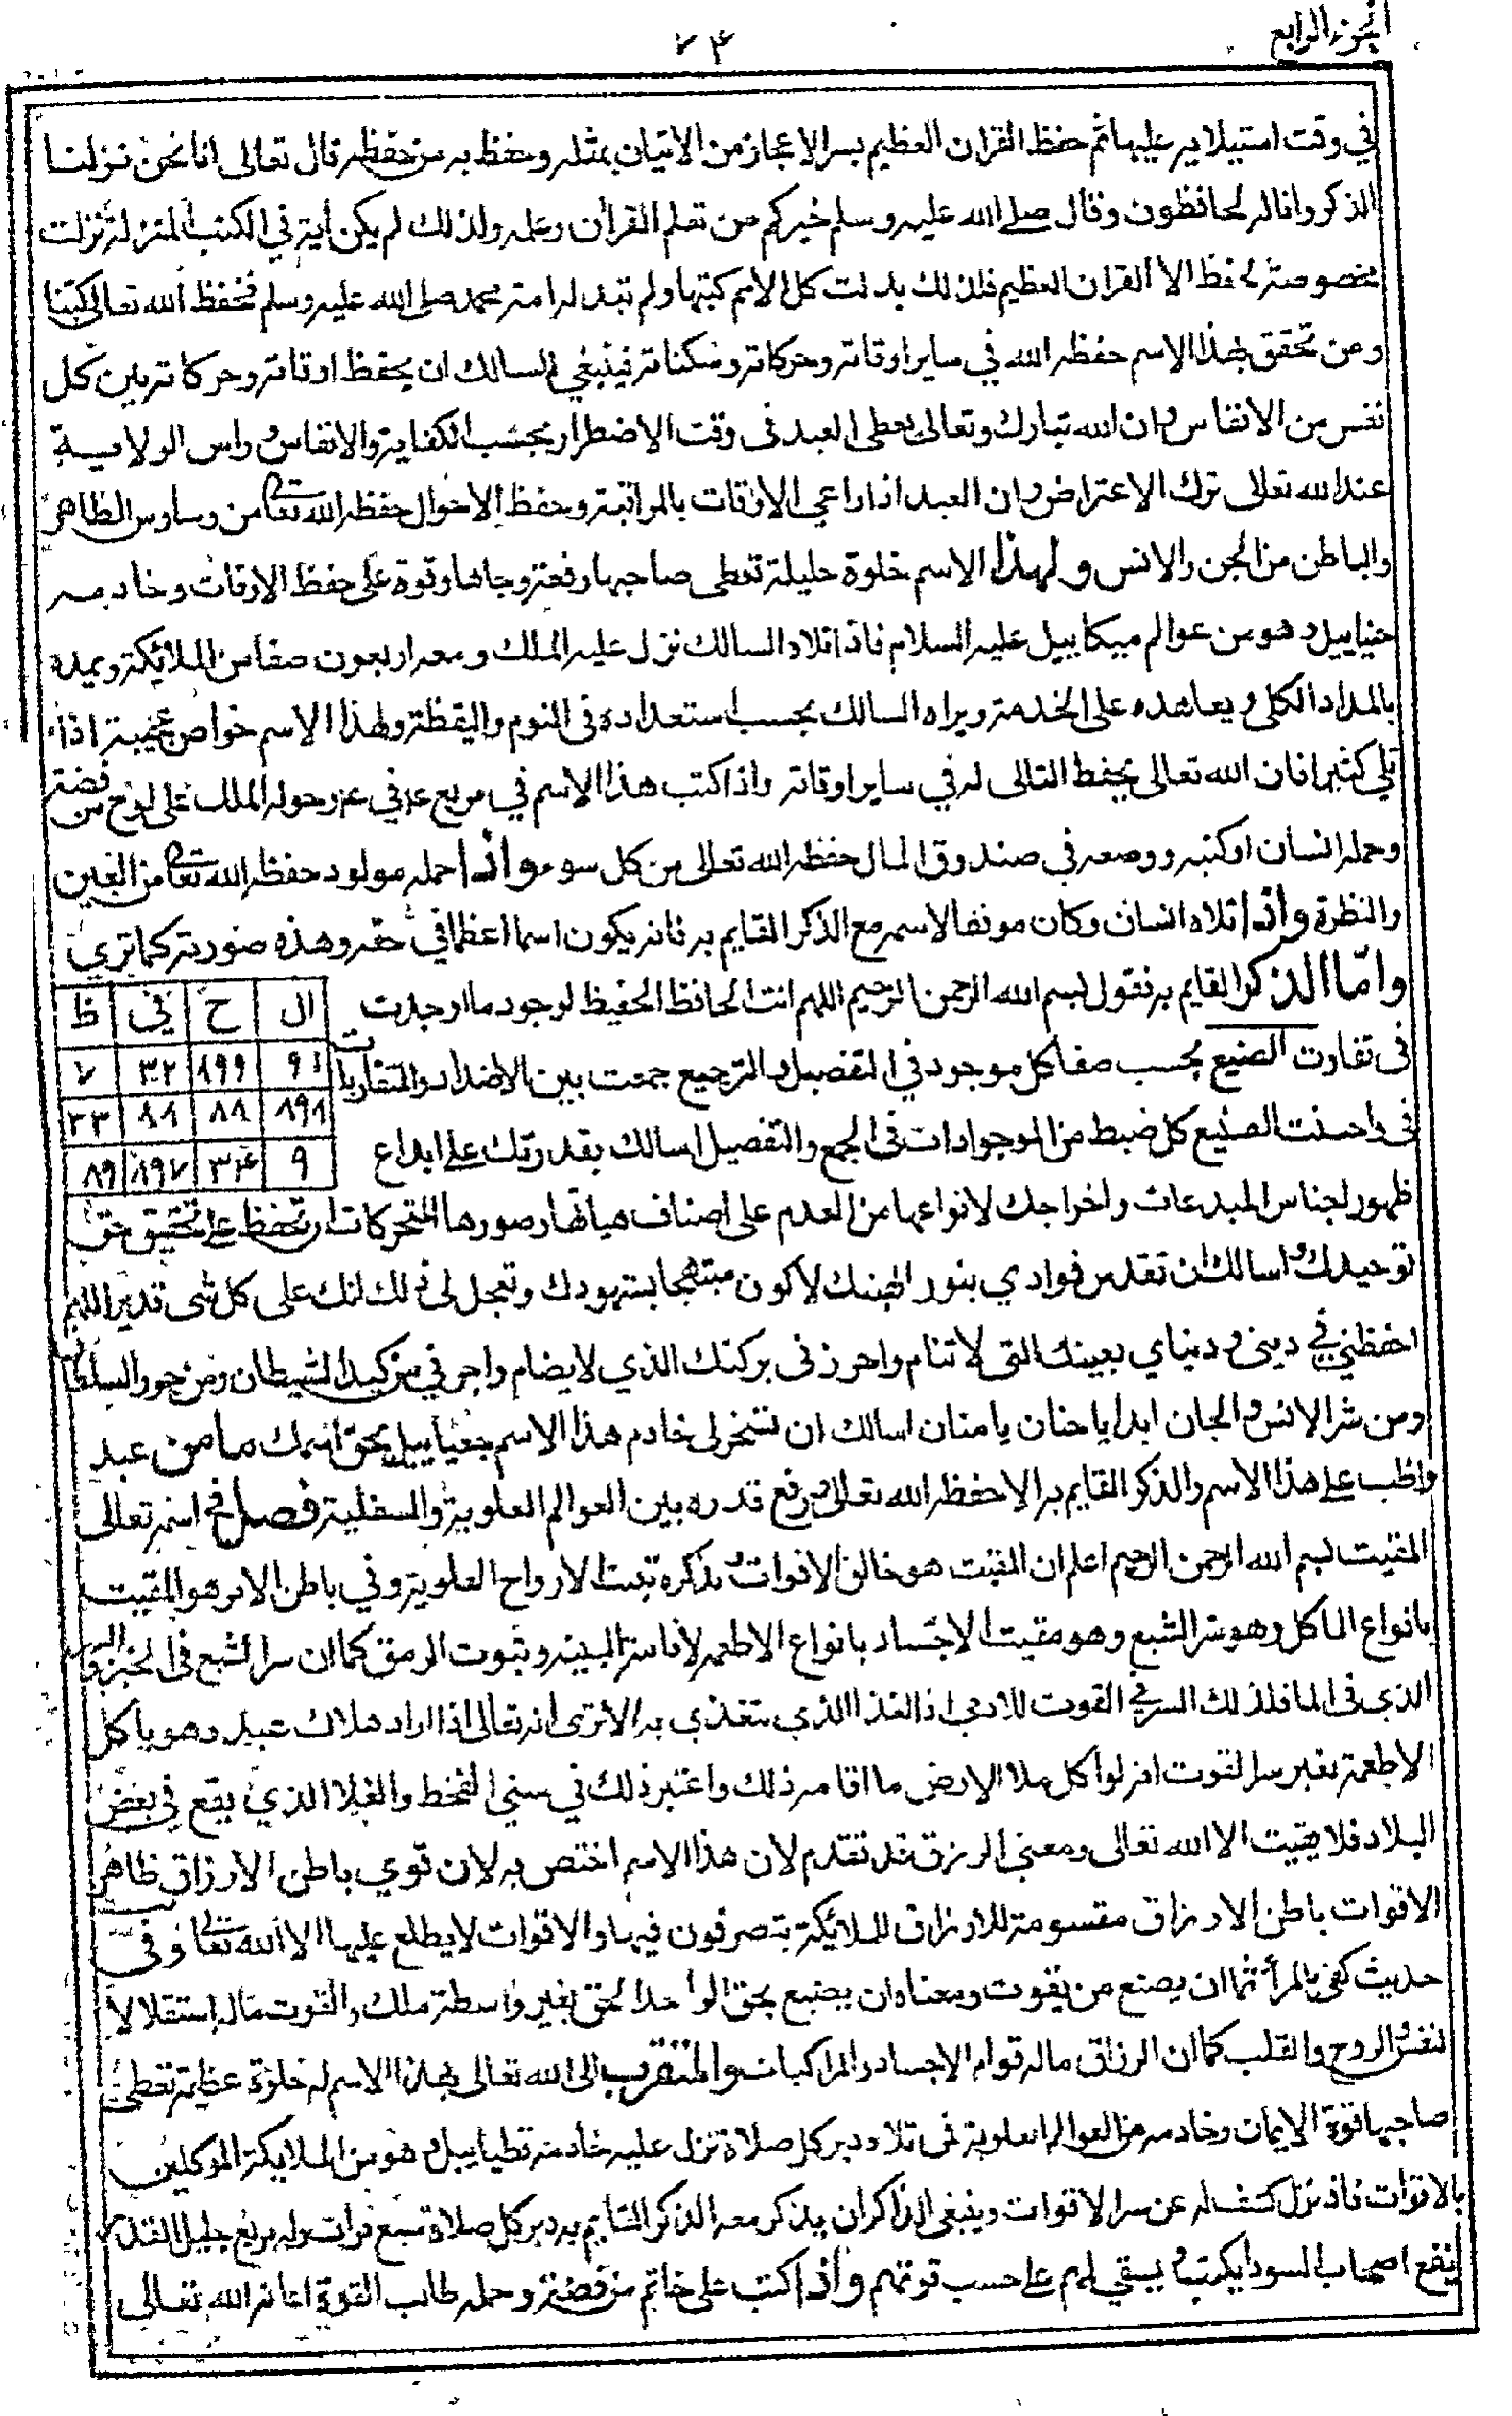 الجزء الرابع
٧٤
في وقت استيلايه عليها ثم حفظ القران العظيم بسر الاعجاز من الاتيان بمثله وحفظ به من حفظه قال تعالى انا نحن نزلنا
الذكر وانا له لحافظون وقال صلى الله عليه وسلم خيركم من تعلم القران وعلمه ولذلك لم يكن آية في الكتب المنزلة نزلت
مخصوصة بحفظ الا القران العظيم فلذلك بدلت كل الامم كتبها ولم تبدل امة محمد صلى الله عليه وسلم فحفظ الله تعالى كتبنا
ومن تحقق بهذا الاسم حفظه الله في ساير اوقاته وحركاته وسكناته فينبغي للسالك ان يحفظ اوقاته وحركاته بين كل
نفس من الانفاس وان الله تبارك وتعالى يعطى العبد فى وقت الاضطرار بحسب الكفاية والانفاس وراس الولاية
عند الله تعالى ترك الاعتراض وان العبد اذا راعى الاوقات بالمراقبة وحفظ الاحوال حفظه الله تعالى من وساوس الظاهر
والباطن من الجن والانس ولهذا الاسم خلوة جليلة تعطى صاحبها رفعة وجاها وقوة على حفظ الاوقات وخادمه
حنياييل وهو من عوالم ميكاييل عليه السلام فاذا تلاه السالك نزل عليه الملك ومعه اربعون صفا من الملائكة ويمده
بالمداد الكلى ويعاهده على الخدمة ويراه السالك بحسب استعداده فى النوم واليقظة ولهذا الاسم خواص عجيبة اذا
تلي كثيرا فان الله تعالى يحفظ التالى له في ساير اوقاته واذا كتب هذا الاسم في مربع ع في ع وحوله الملك على لوح من فضة
وحمله انسان او كتبه ووضعه في صندوق المال حفظه الله تعالى من كل سوء واذا حمله مولود حفظه الله تعالى من العين
والنظرة واذا تلاه انسان وكان موافقا لاسمه مع الذكر القايم به فانه يكون اسما اعظما في حقه وهذه صورته كما ترى
واما الذكر القايم به فتقول بسم الله الرحمن الرحيم اللهم انت الحافظ الحفيظ لوجود ما اوجدت
فى تفاوت الصنيع بحسب صفا كل موجود في التفصيل والترجيع جمعت بين الاضداد والمتقاربات
فى احسنت الصنيع كل ضبط من الموجودات فى الجمع والتفصيل اسالك بقدرتك على ابداع
ال ح في ظ
٩١ ١٩٩ ٣٢ ٧
١٩١ ٨٨ ٨١ ٣٣
٩ ٣٤ ١٩٧ ٨٩
ظهور اجناس المبدعات واخراجك لانواعها من العدم على اصناف هياتها وصورها المتحركات ان تحفظ على تحقيق حق
توحيدك واسالك ان تقدس فوادي بنور الهيتك لاكون مبتهجا بشهودك وتعجل لى ذلك انك على كل شى قدير اللهم
احفظني في دينى ودنياي بعينك التى لا تنام واحرزنى بركنك الذي لا يضام واجرني من كيد الشيطان ومن جور السلطان
ومن شر الانس والجان ابدا يا حنان يا منان اسالك ان تسخر لى خادم هذا الاسم جعياييل بحق اسمك ما من عبد
واظب على هذا الاسم والذكر القايم به الا حفظه الله تعالى ورفع قدره بين العوالم العلوية والسفلية فصل في اسمه تعالى
المقيت بسم الله الرحمن الرحيم اعلم ان المقيت هو خالق الاقوات وبذكره تقيت الارواح العلوية وفي باطن الامر هو المقيت
بانواع الماكل وهو سر الشبع وهو مقيت الاجساد بانواع الاطعمة لاقامة البينة وثبوت الرمق كما ان سر الشبع في الخبز والسر
الذي فى الما فلذلك السر في القوت للادمى اذ الغذا الذي يتغذي به الا ترى انه تعالى اذا اراد هلاك عبد وهو ياكل
الاطعمة بغير سر القوت انه لو اكل ملا الارض ما اقامه ذلك واعتبر ذلك في سني القحط والغلا الذي يقع في بعض
البلاد فلا يقيت الا الله تعالى ومعنى الرزق قد تقدم لان هذا الاسم اختص به لان قوي باطن الارزاق ظاهر
الاقوات باطن الارزاق مقسومة للارزاق للملائكة يتصرفون فيها والاقوات لا يطلع عليها الا الله تعالى وفى
حديث كفى بالمرأ اثما ان يضيع من يقوت ومعناه ان يضيع بحق الواحد الحق بغير واسطة ملك والقوت ماله استقلالا
لنفس الروح والقلب كما ان الرزاق ماله قوام الاجساد والمركبات والمتقرب الى الله تعالى بهذا الاسم له خلوة عظيمة تعطى
صاحبها قوة الايمان وخادمه من العوالم العلوية فمن تلاه دبر كل صلاة نزل عليه خادمه تطياييل وهو من الملايكة الموكلين
بالاقوات فاذا نزل كشف له عن سر الاقوات وينبغى للذاكر ان يذكر معه الذكر القايم به دبر كل صلاة سبع مرات وله مربع جليل القدر
ينفع اصحاب السودا يكتب ويسقي لهم على حسب قوتهم واذا كتب على خاتم من فضة وحمله طالب القوة اعانه الله تعالى